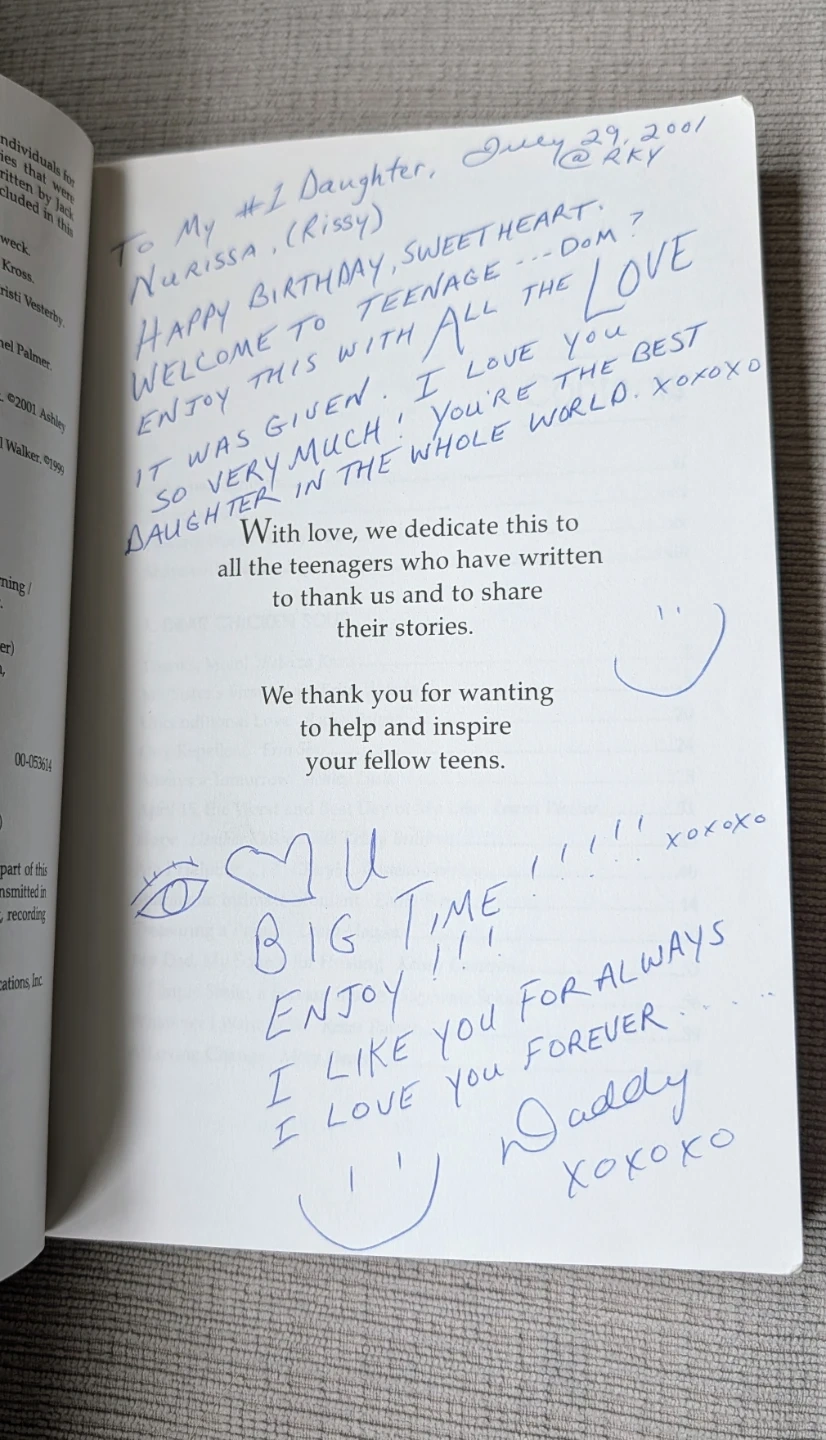 ndividuals for
ies that were
ritten by Jack
cluded in this
weck.
Kross.
risti Vesterby.
nel Palmer.
©2001 Ashley
l Walker. ©1999
ning /
er)
00-053614
part of this
nsmitted in
, recording
cations, Inc
July 29, 2001
@ RKY
To My #1 Daughter,
NURISSA, (RISSY)
HAPPY BIRTHDAY, SWEETHEART.
WELCOME TO TEENAGE ... DOM ?
ENJOY THIS WITH ALL THE LOVE
IT WAS GIVEN. I LOVE YOU
SO VERY MUCH! YOU'RE THE BEST
DAUGHTER IN THE WHOLE WORLD. XOXOXO
With love, we dedicate this to
all the teenagers who have written
to thank us and to share
their stories.
We thank you for wanting
to help and inspire
your fellow teens.
U
BIG TIME !!!!! XOXOXO
ENJOY !!!
I LIKE YOU FOR ALWAYS
I LOVE YOU FOREVER.....
Daddy
XOXOXO